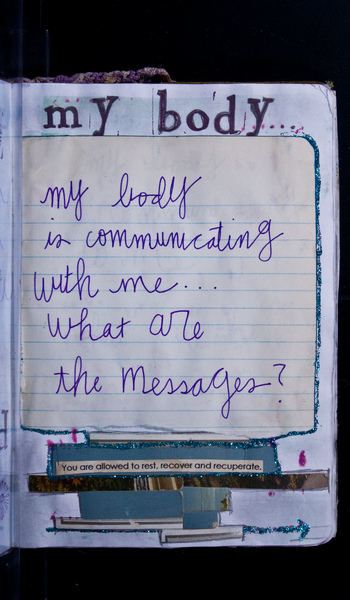 my body...
my body
is communicating
with me...
what are
the messages?
You are allowed to rest, recover and recuperate.